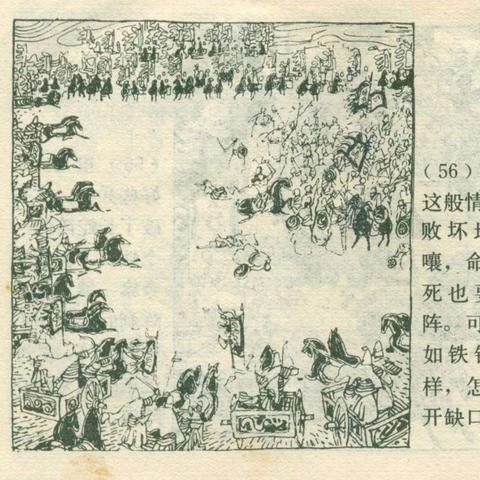 （56）
这般情
败坏
嚷，命
死也要
阵。可
如铁
样，怎
开缺口